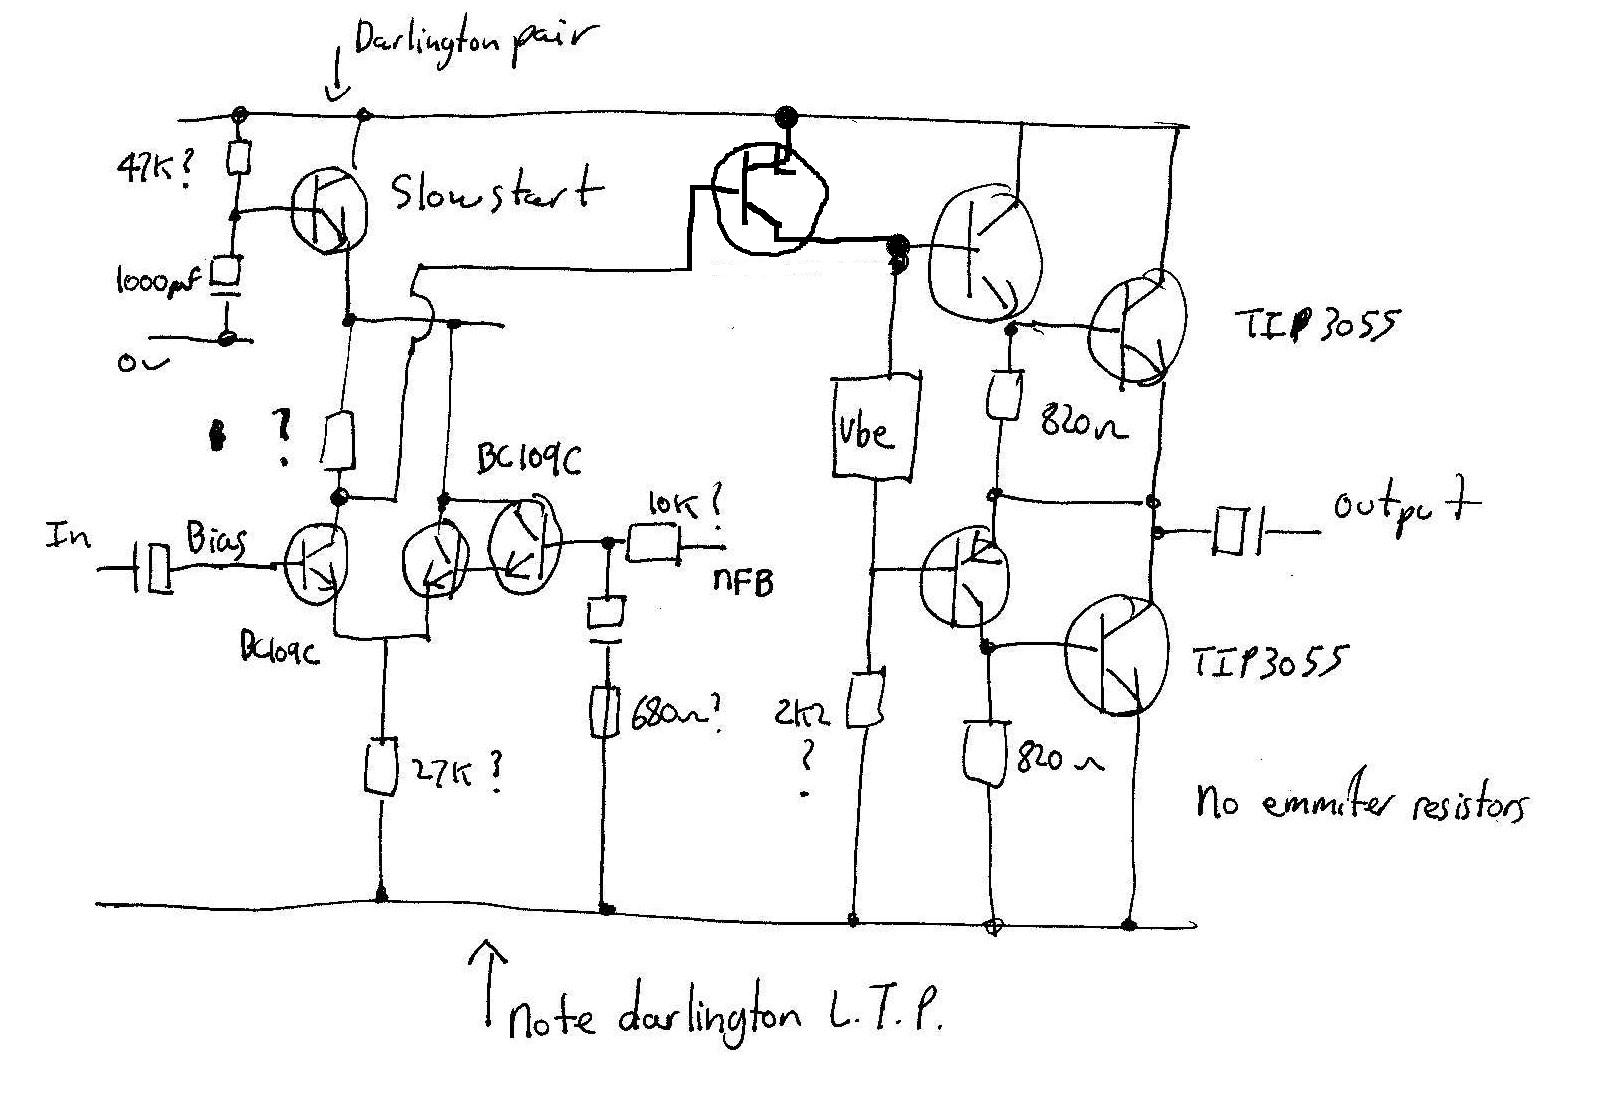 Darlington pair
47K?
Slow start
1000µf
0v
TIP3055
Vbe
820Ω
?
BC109C
10K?
output
In
Bias
nFB
BC109C
TIP3055
680Ω?
2K2
?
27K?
820Ω
No emmiter resistors
Note darlington L.T.P.